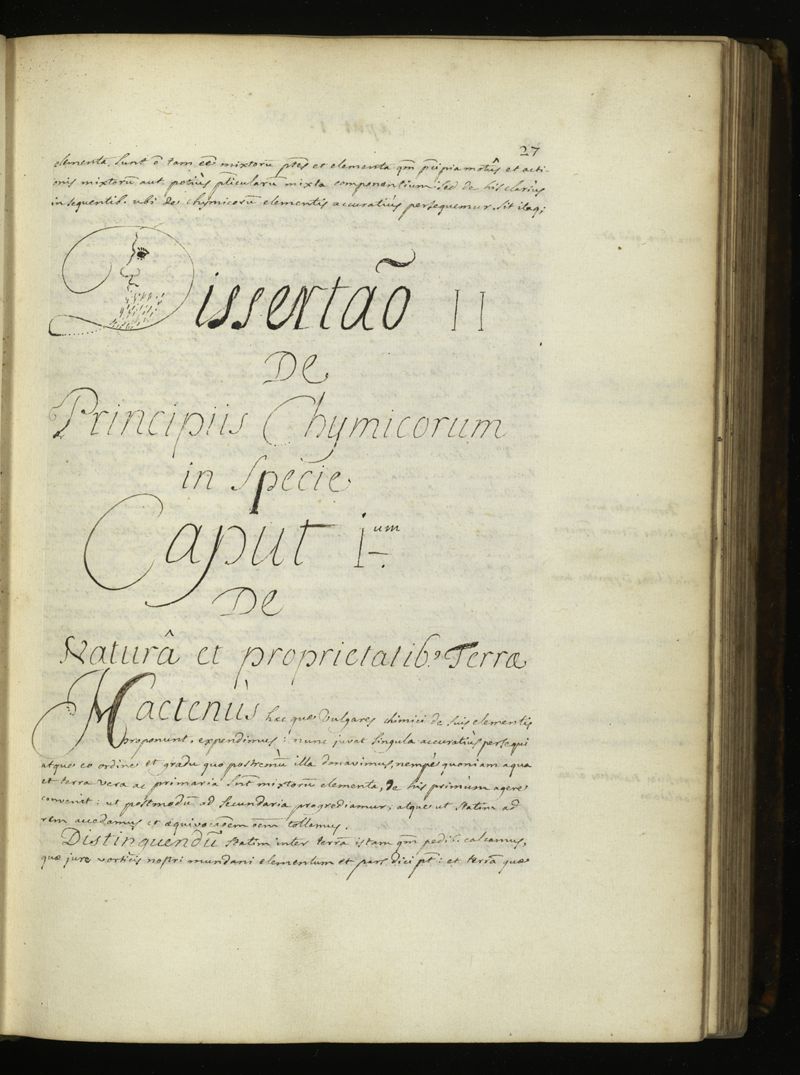 27
elementa. sunt õ tam eẽ mixtoru ptes et elementa qm pcipia motûs et acti-
onis mixtorũ aut potiùs pticularũ mixta componentium: sed de his clariùs
in sequentib. ubi de chymicorũ elementis accuratiùs persequemur. sit itaq;
Dissertaõ II
De
Principiis Chymicorum
in Specie
Caput 1.um
De
Naturâ et proprietatib9 Terræ
Hactenùs hæc quæ vulgares chimici de suis elementis
proponunt, expendimus: nunc juvat singula accuratiùs persequi
atque eo ordine et gradu quo postremũ illa donavimus, nempè quoniam aqua
et terra vera ac primaria sunt mixtorũ elementa, de his primùm agere
convenit: ut postmodũ ad secundaria progrediamur; atque ut statim ad
rem accedamus et æquivocaõem oẽm tollamus.
Distinguendũ statim inter terrã istam qm pedib. calcamus,
quæ jure vorticis nostri mundani elementum et pars dici pt: et terrã quæ